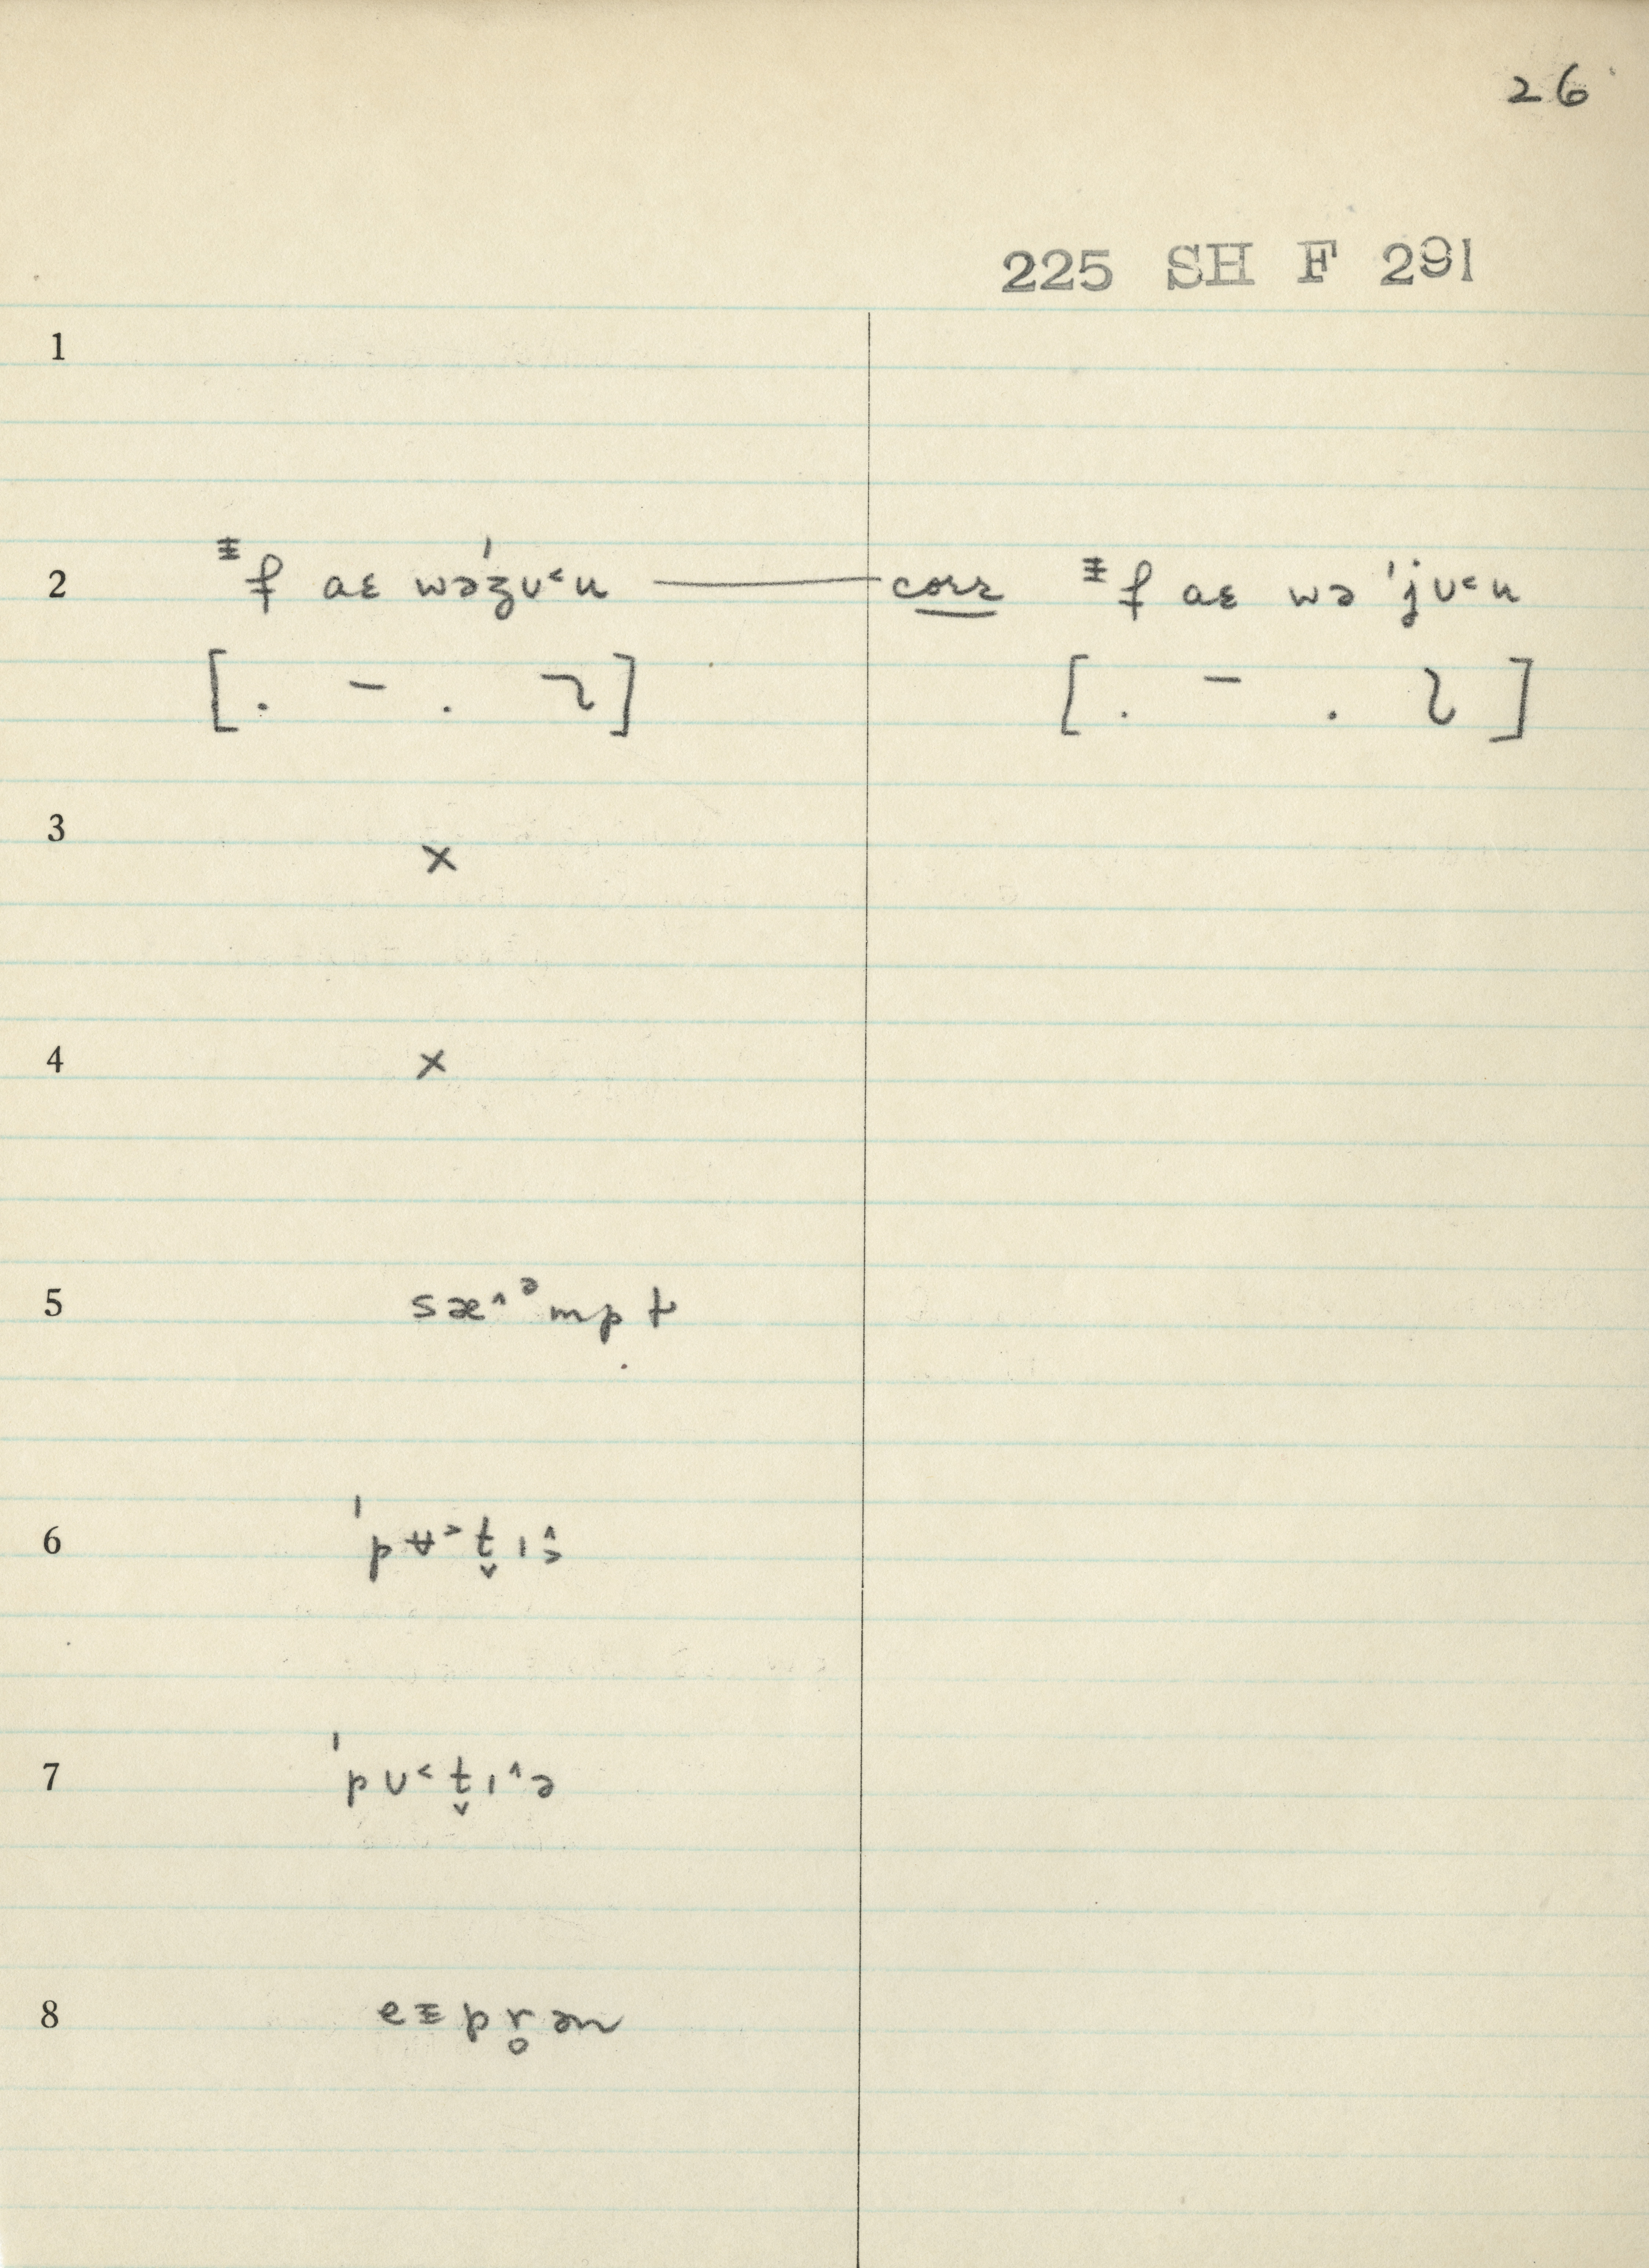 26
225 SH F 291
1
2 ᵻf aɛ wə'ʒʊ˂u — corr ᵻf aɛ wə 'jʊ˂u
3 ×
4 ×
5 sæ˄ᵊmp t
6 'pʉ˃t̬ɪ
7 'pʊ˂t̬ɪ˄ə
8 epr̥ən